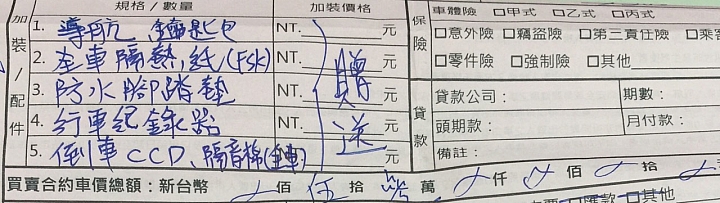 加裝/配件 規格/數量 加裝價格
1. 導航 鑰匙包 NT. 元
2. 全車隔熱紙(FSK) NT. 元
3. 防水腳踏墊 NT. 元
4. 行車紀錄器 NT. 元
5. 倒車CCD、隔音棉(全車) NT. 元
贈送
保險 車體險 □甲式 □乙式 □丙式
□意外險 □竊盜險 □第三責任險 □乘客
□零件險 □強制險 □其他
貸款 貸款公司： 期數：
頭期款： 月付款：
備註：
買賣合約車價總額：新台幣 佰 伍 拾 萬 仟 佰 拾
□匯款 □其他